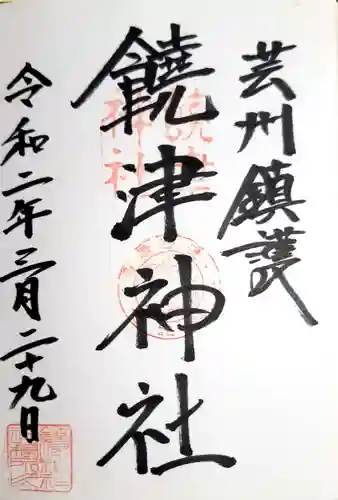 芸州鎮護
饒津神社
令和二年三月二十九日